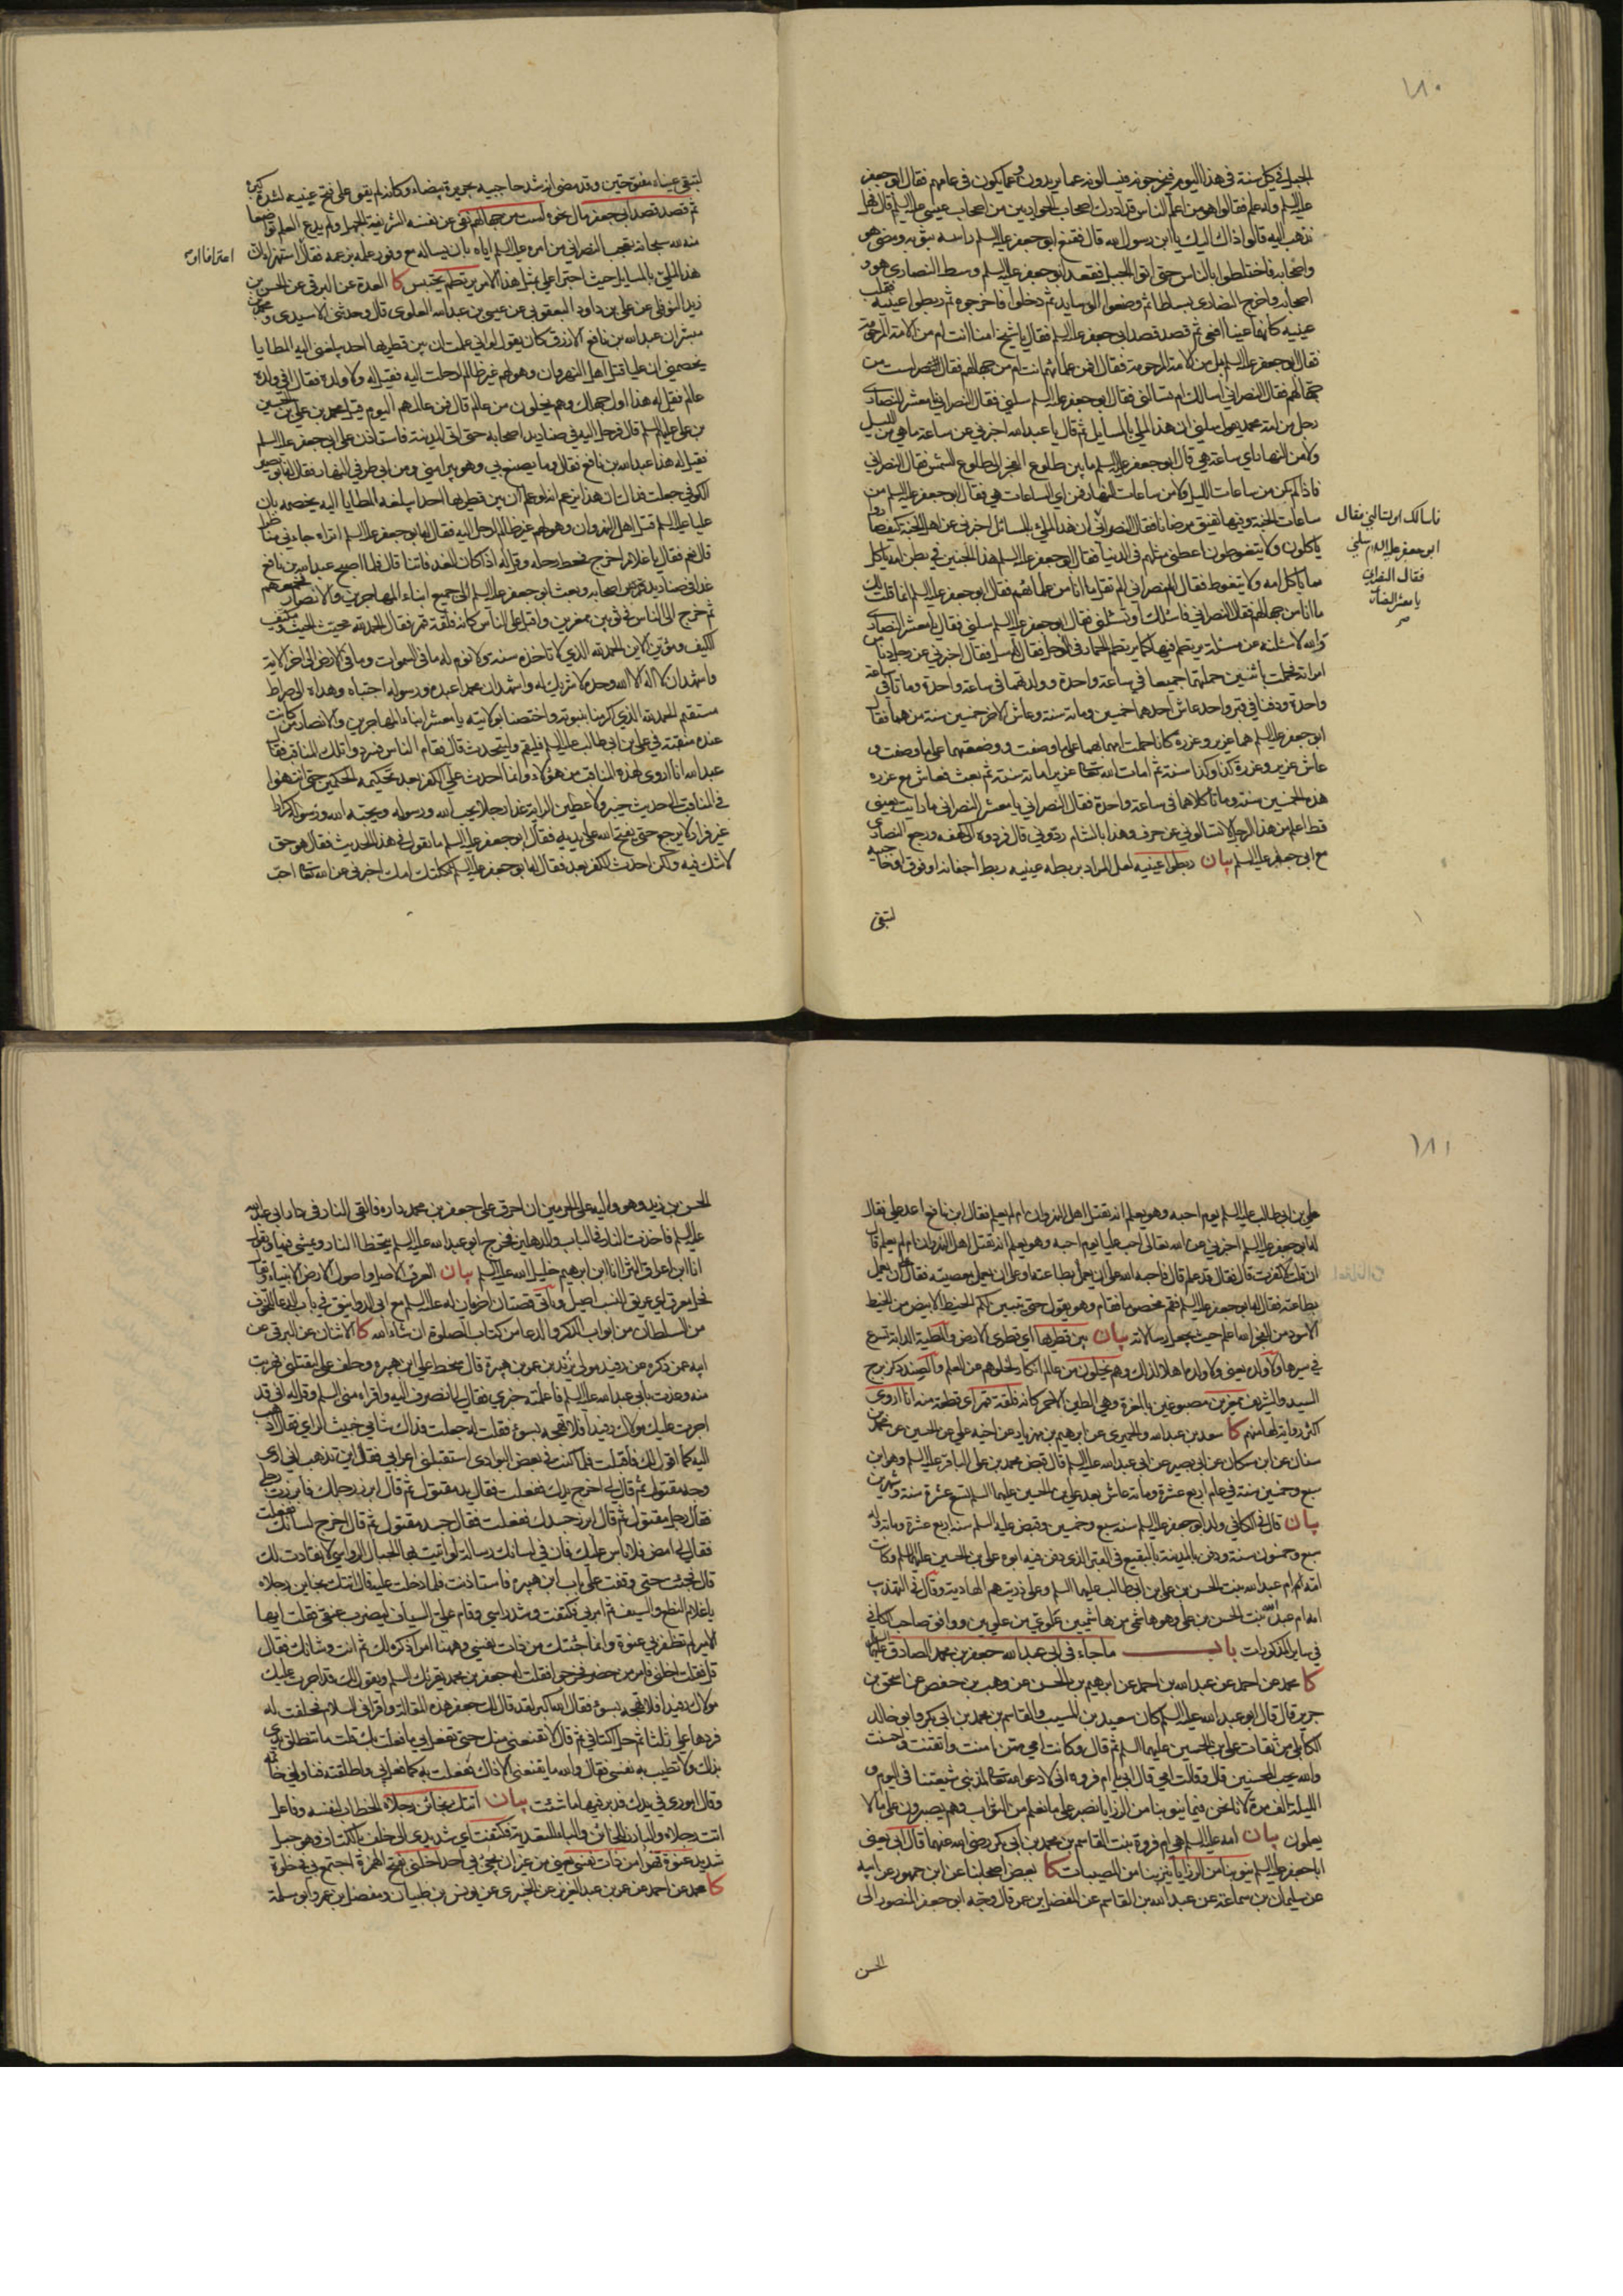 ١٨٠
الجبل في كل سنة في هذا اليوم فيخرجونه فيسألونه عما يريدون وعما يكون في عامهم فقال ابو جعفر
عليه السلم وله علم فقالوا هو من اعلم الناس قد ادرك اصحاب الحواريين من اصحاب عيسى عليه السلم قال فهل
نذهب اليه قالوا ذاك اليك يا ابن رسول الله قال فقنع ابو جعفر عليه السلم راسه بثوبه ومضى هو
واصحابه فاختلطوا بالناس حتى اتوا الجبل فقعد ابو جعفر عليه السلم وسط النصارى هو و
اصحابه واخرج النصارى بساطا ثم وضعوا الوسايد ثم دخلوا فاخرجوه ثم ربطوا عينيه فقلب
عينيه كانها عينا افعى ثم قصد قصد ابي جعفر عليه السلم فقال يا شيخ امنا انت ام من الامة المرحومة
فقال ابو جعفر عليه السلم بل من الامة المرحومة فقال افمن علمائهم انت ام من جهالهم فقال لست من
جهالهم فقال النصراني اسالك ام تسالني فقال ابو جعفر عليه السلم سلني فقال النصراني يا معشر النصارى
رجل من امة محمد يقول سلني ان هذا لملي بالمسايل ثم قال يا عبد الله اخبرني عن ساعة ما هي من الليل
ولا من النهار اي ساعة هي قال ابو جعفر عليه السلم ما بين طلوع الفجر الى طلوع الشمس فقال النصراني
فاذا لم تكن من ساعات الليل ولا من ساعات النهار فمن اي الساعات هي فقال ابو جعفر عليه السلم من
ساعات الجنة وفيها تفيق مرضانا فقال النصراني ان هذا لملئ بالمسائل اخبرني عن اهل الجنة كيف صاروا
ياكلون ولا يتغوطون اعطني مثلهم في الدنيا فقال ابو جعفر عليه السلم هذا الجنين في بطن امه ياكل
مما تاكل امه ولا يتغوط فقال النصراني الم تقل ما انا من علمائهم فقال ابو جعفر عليه السلم انما قلت لك
ما انا من جهالهم فقال النصراني فاسئلك او تسئلني فقال ابو جعفر عليه السلم سلني فقال يا معشر النصارى
والله لاسئلنه عن مسئلة يرتطم فيها كما يرتطم الحمار في الوحل فقال له سل فقال اخبرني عن رجل دنا من
امراته فحملت باثنين حملتهما جميعا في ساعة واحدة وولدتهما في ساعة واحدة وماتا في ساعة
واحدة ودفنا في قبر واحد عاش احدهما خمسين ومائة سنة وعاش الاخر خمسين سنة من هما فقال
ابو جعفر عليه السلم هما عزير وعزره كانا حملت امهما بهما على ما وصفت ووضعتهما على ما وصفت و
عاش عزير وعزرة كذا وكذا سنة ثم امات الله تعالى عزيرا مائة سنة ثم بعث فعاش مع عزره
هذه الخمسين سنة وماتا كلاهما في ساعة واحدة فقال النصراني يا معشر النصارى ما رايت بعيني
قط اعلم من هذا الرجل لا تسالوني عن حرف وهذا بالشام ردوني قال فردوه الى كهفه ورجع النصارى
مع ابي جعفر عليه السلم بيان ربطوا عينيه لعل المراد بربطه عينيه ربط اجفانه او فوق
لتبقى
فاسالك او تسالني فقال
ابو جعفر عليه السلام سلني
فقال النصراني
يا معشر النصارى
لتبقى عيناه مفتوحتين وقد مضى انه شد حاجبيه بحريرة بيضاء وكانه لم يقو على فتح عينيه لشدة كبره
ثم قصد قصد ابي جعفر مال نحوه لست من جهالهم نفى عن نفسه الشريفة الجهل ولم يدع العلم تواضعا
منه لله سبحانه تعجب النصراني من امره عليه السلم اياه بان يساله مع وفور علمه بزعمه فقال استهزاء ان
هذا لملئ بالمسايل حيث اجترا على مثل هذا الامر يرتطم يحتبس كا العدة عن البرقي عن الحسن بن
زيد النوفلي عن علي بن داود اليعقوبي عن عيسى بن عبد الله العلوي قال وحدثني الاسيدي ومحمد بن
مبشر ان عبد الله بن نافع الازرق كان يقول لو اني علمت ان بين قطريها احد يبلغني اليه المطايا
يخصمني ان عليا قتل اهل النهروان وهو لهم غير ظالم لرحلت اليه فقيل له ولا ولده فقال افي ولده
عالم فقيل له هذا اول جهلك وهم يخلون من عالم قال فمن عالمهم اليوم قيل محمد بن علي بن الحسين
بن علي عليهم السلم قال فرحل اليه في صناديد اصحابه حتى اتى المدينة فاستاذن على ابي جعفر عليه السلم
فقيل له هذا عبد الله بن نافع فقال وما يصنع بي وهو يبرا مني ومن ابي طرفي النهار فقال له ابو بصير
الكوفي جعلت فداك ان هذا يزعم انه لو علم ان بين قطريها احدا يبلغه المطايا اليه يخصمه بان
عليا عليه السلم قتل اهل النهروان وهو لهم غير ظالم لرحل اليه فقال له ابو جعفر عليه السلم اتراه جاءني مناظرا
قال نعم فقال يا غلام اخرج فحط رحله وقل له اذا كان الغد فاتنا قال فلما اصبح عبد الله بن نافع
غدا في صناديد اصحابه وبعث ابو جعفر عليه السلم الى جميع ابناء المهاجرين والانصار فجمعهم
ثم خرج الى الناس في ثوبين ممغرين واقبل على الناس كانه فلقة قمر فقال الحمد لله محيث الحيث ومكيف
الكيف ومؤين الاين الحمد لله الذي لا تاخذه سنة ولا نوم له ما في السموات وما في الارض الى اخر الاية
واشهد ان لا اله الا الله وحده لا شريك له واشهد ان محمدا عبده ورسوله اجتباه وهداه الى صراط
مستقيم الحمد لله الذي كرمنا بنبوته واختصنا بولايته يا معشر ابناء المهاجرين والانصار من كانت
عنده منقبة في علي بن ابي طالب عليه السلم فليقم وليتحدث قال فقام الناس فسردوا تلك المناقب فقال
عبد الله انا اروى لهذه المناقب من هؤلاء وانما احدث علي الكفر بعد تحكيمه الحكمين حتى انتهوا
في المناقب الى حديث خيبر لاعطين الراية غدا رجلا يحب الله ورسوله ويحبه الله ورسوله كرارا
غير فرار لا يرجع حتى يفتح الله على يديه فقال ابو جعفر عليه السلم ما تقول في هذا الحديث فقال هو حق
لا شك فيه ولكن احدث الكفر بعد فقال له ابو جعفر عليه السلم ثكلتك امك اخبرني عن الله تعالى احب
١٨١
علي بن ابي طالب عليه السلم يوم احبه وهو يعلم انه يقتل اهل النهروان ام لم يعلم فقال ابن نافع اعد علي فقال
له ابو جعفر عليه السلم اخبرني عن الله تعالى احب عليا يوم احبه وهو يعلم انه يقتل اهل النهروان ام لم يعلم قال
ان قلت لا كفرت قال فقال قد علم قال فاحبه الله على ان يعمل بطاعته او على ان يعمل بمعصيته فقال على ان يعمل
بطاعته فقال له ابو جعفر عليه السلم فقم مخصوما فقام وهو يقول حتى يتبين لكم الخيط الابيض من الخيط
الاسود من الفجر الله اعلم حيث يجعل رسالاته بيان بين قطريها اي قطري الارض والمطية الدابة تسرع
في سيرها ولا ولده يعني ولا ولده اهلا لذلك وهم يخلون من عالم انكار لخلوهم عن العلم والصنديد كزبرج
السيد والشريف ممغرين مصبوغين بالمغرة وهي الطين الاحمر كانه فلقة قمر اي قطعة منه انا اروى
اكثر رواية لها منهم كا سعد بن عبد الله والحميري عن ابرهيم بن مهزيار عن اخيه علي عن الحسين عن محمد بن
سنان عن ابن مسكان عن ابي بصير عن ابي عبد الله عليه السلم قال قبض محمد بن علي الباقر عليه السلم وهو ابن
سبع وخمسين سنة في عام اربع عشرة ومائة عاش بعد علي بن الحسين عليهما السلم تسع عشرة سنة وشهرين
بيان قال في الكافي ولد ابو جعفر عليه السلم سنه سبع وخمسين وقبض عليه السلم سنة اربع عشرة ومائة وله
سبع وخمسون سنة ودفن بالمدينة بالبقيع في القبر الذي دفن فيه ابوه علي بن الحسين عليهما السلم وكانت
امه ام عبد الله بنت الحسن بن علي بن ابي طالب عليهما السلم وعلى ذريتهم الهادية وقال في التهذيب
امه ام عبد الله بنت الحسن بن علي وهو هاشمي من هاشميين علوي من علويين ووافق صاحب الكافي
في ساير المذكورات باب ما جاء في ابي عبد الله جعفر بن محمد الصادق عليهما
كا محمد عن احمد عن عبد الله بن احمد عن ابرهيم بن الحسن عن وهب بن حفص عن اسحق بن
جرير قال قال ابو عبد الله عليه السلم كان سعيد بن المسيب والقاسم بن محمد بن ابي بكر وابو خالد
الكابلي من ثقات علي بن الحسين عليهما السلم ثم قال وكانت امي ممن امنت واتقت واحسنت
والله يحب المحسنين قال وقالت امي قال ابي يا ام فروه اني لادعو الله تعالى لمذنبي شيعتنا في اليوم و
الليلة الف مرة لانا نحن فيما ينوبنا من الرزايا نصبر على ما نعلم من الثواب وهم يصبرون على ما لا
يعلمون بيان امه عليه السلم هي ام فروة بنت القاسم بن محمد بن ابي بكر رضي الله عنهما قال ابي يعني
ابا جعفر عليه السلم ينوبنا من الرزايا ينزل بنا من المصيبات كا بعض اصحابنا عن ابن جمهور عن ابيه
عن سليمان بن سماعة عن عبد الله بن القاسم عن المفضل بن عمر قال وجه ابو جعفر المنصور الى
الحسن
الحسن بن زيد وهو واليه على الحرمين ان احرق على جعفر بن محمد داره فالقى النار في دار ابي عبد الله
عليه السلم فاخذت النار في الباب والدهليز فخرج ابو عبد الله عليه السلم يتخطا النار ويمشي فيها ويقول
انا ابن اعراق الثرى انا ابن ابرهيم خليل الله عليه السلم بيان العرق الاصل واصول الارض الانبياء
من السلطان من ابواب الذكر والدعاء من كتاب الصلوة ان شاء الله كا الاثنان عن البرقي عن
ابيه عمن ذكره عن رفيد مولى يزيد بن عمرو بن هبيرة قال سخط علي ابن هبيره وحلف علي ليقتلني فهربت
منه وعذت بابي عبد الله عليه السلم فاعلمته خبري فقال لي انصرف اليه واقراه مني السلم وقل له اني قد
اجرت عليك مولاك رفيدا فلا تهجه بسوء فقلت له جعلت فداك شامي خبيث الراي فقال اذهب
اليه كما اقول لك فاقبلت فلما كنت في بعض البوادي استقبلني اعرابي فقال اين تذهب اني ارى
وجه مقتول ثم قال لي اخرج يدك ففعلت فقال يد مقتول ثم قال ابرز رجلك فابرزت رجلي
فقال رجل مقتول ثم قال ابرز جسدك ففعلت فقال جسد مقتول ثم قال اخرج لسانك ففعلت
فقال لي امض فلا باس عليك فان في لسانك رسالة لو اتيت بها الجبال الرواسي لانقادت لك
قال فجئت حتى وقفت على باب ابن هبيره فاستاذنت فلما دخلت عليه قال اتتك بخاين رجلاه
يا غلام النطع والسيف ثم امر بي فكتفت وشد راسي وقام علي السياف ليضرب عنقي فقلت ايها
الامير لم تظفر بي عنوة وانما جئتك من ذات نفسي وههنا امر اذكره لك ثم انت وشانك فقال
قل فقلت اخلني فامر من حضر فخرجوا فقلت له جعفر بن محمد يقرئك السلم ويقول لك قد اجرت عليك
مولاك رفيدا فلا تهجه بسوء فقال الله اكبر لقد قال لك جعفر هذه المقالة واقراني السلام فحلفت له
فردها علي ثلثا ثم حل اكتافي ثم قال لا يقنعني منك حتى تفعل بي ما فعلت بك قلت ما تنطلق يدي
بذاك ولا تطيب به نفسي فقال والله ما يقنعني الا ذاك ففعلت به كما فعل بي واطلقته فناولني خاتمه
وقال اموري في يدك فدبر فيها ما شئت بيان اتتك بخائن رجلاه الخطاب لنفسه وفاعل
اتت رجلاه والبارز الخائن والباء للتعدية فكتفت اي شد يدي الى خلف بالكتاف وهو حبل
شديد عنوة قهرا من ذات نفسي من غير ان يجئ بي احد اخلني بفتح الهمزة اجتمع بي في خلوة
كا محمد عن احمد عن عمر بن عبد العزيز عن الخيبري عن يونس بن ظبيان ومفضل بن عمر وابو سلمة